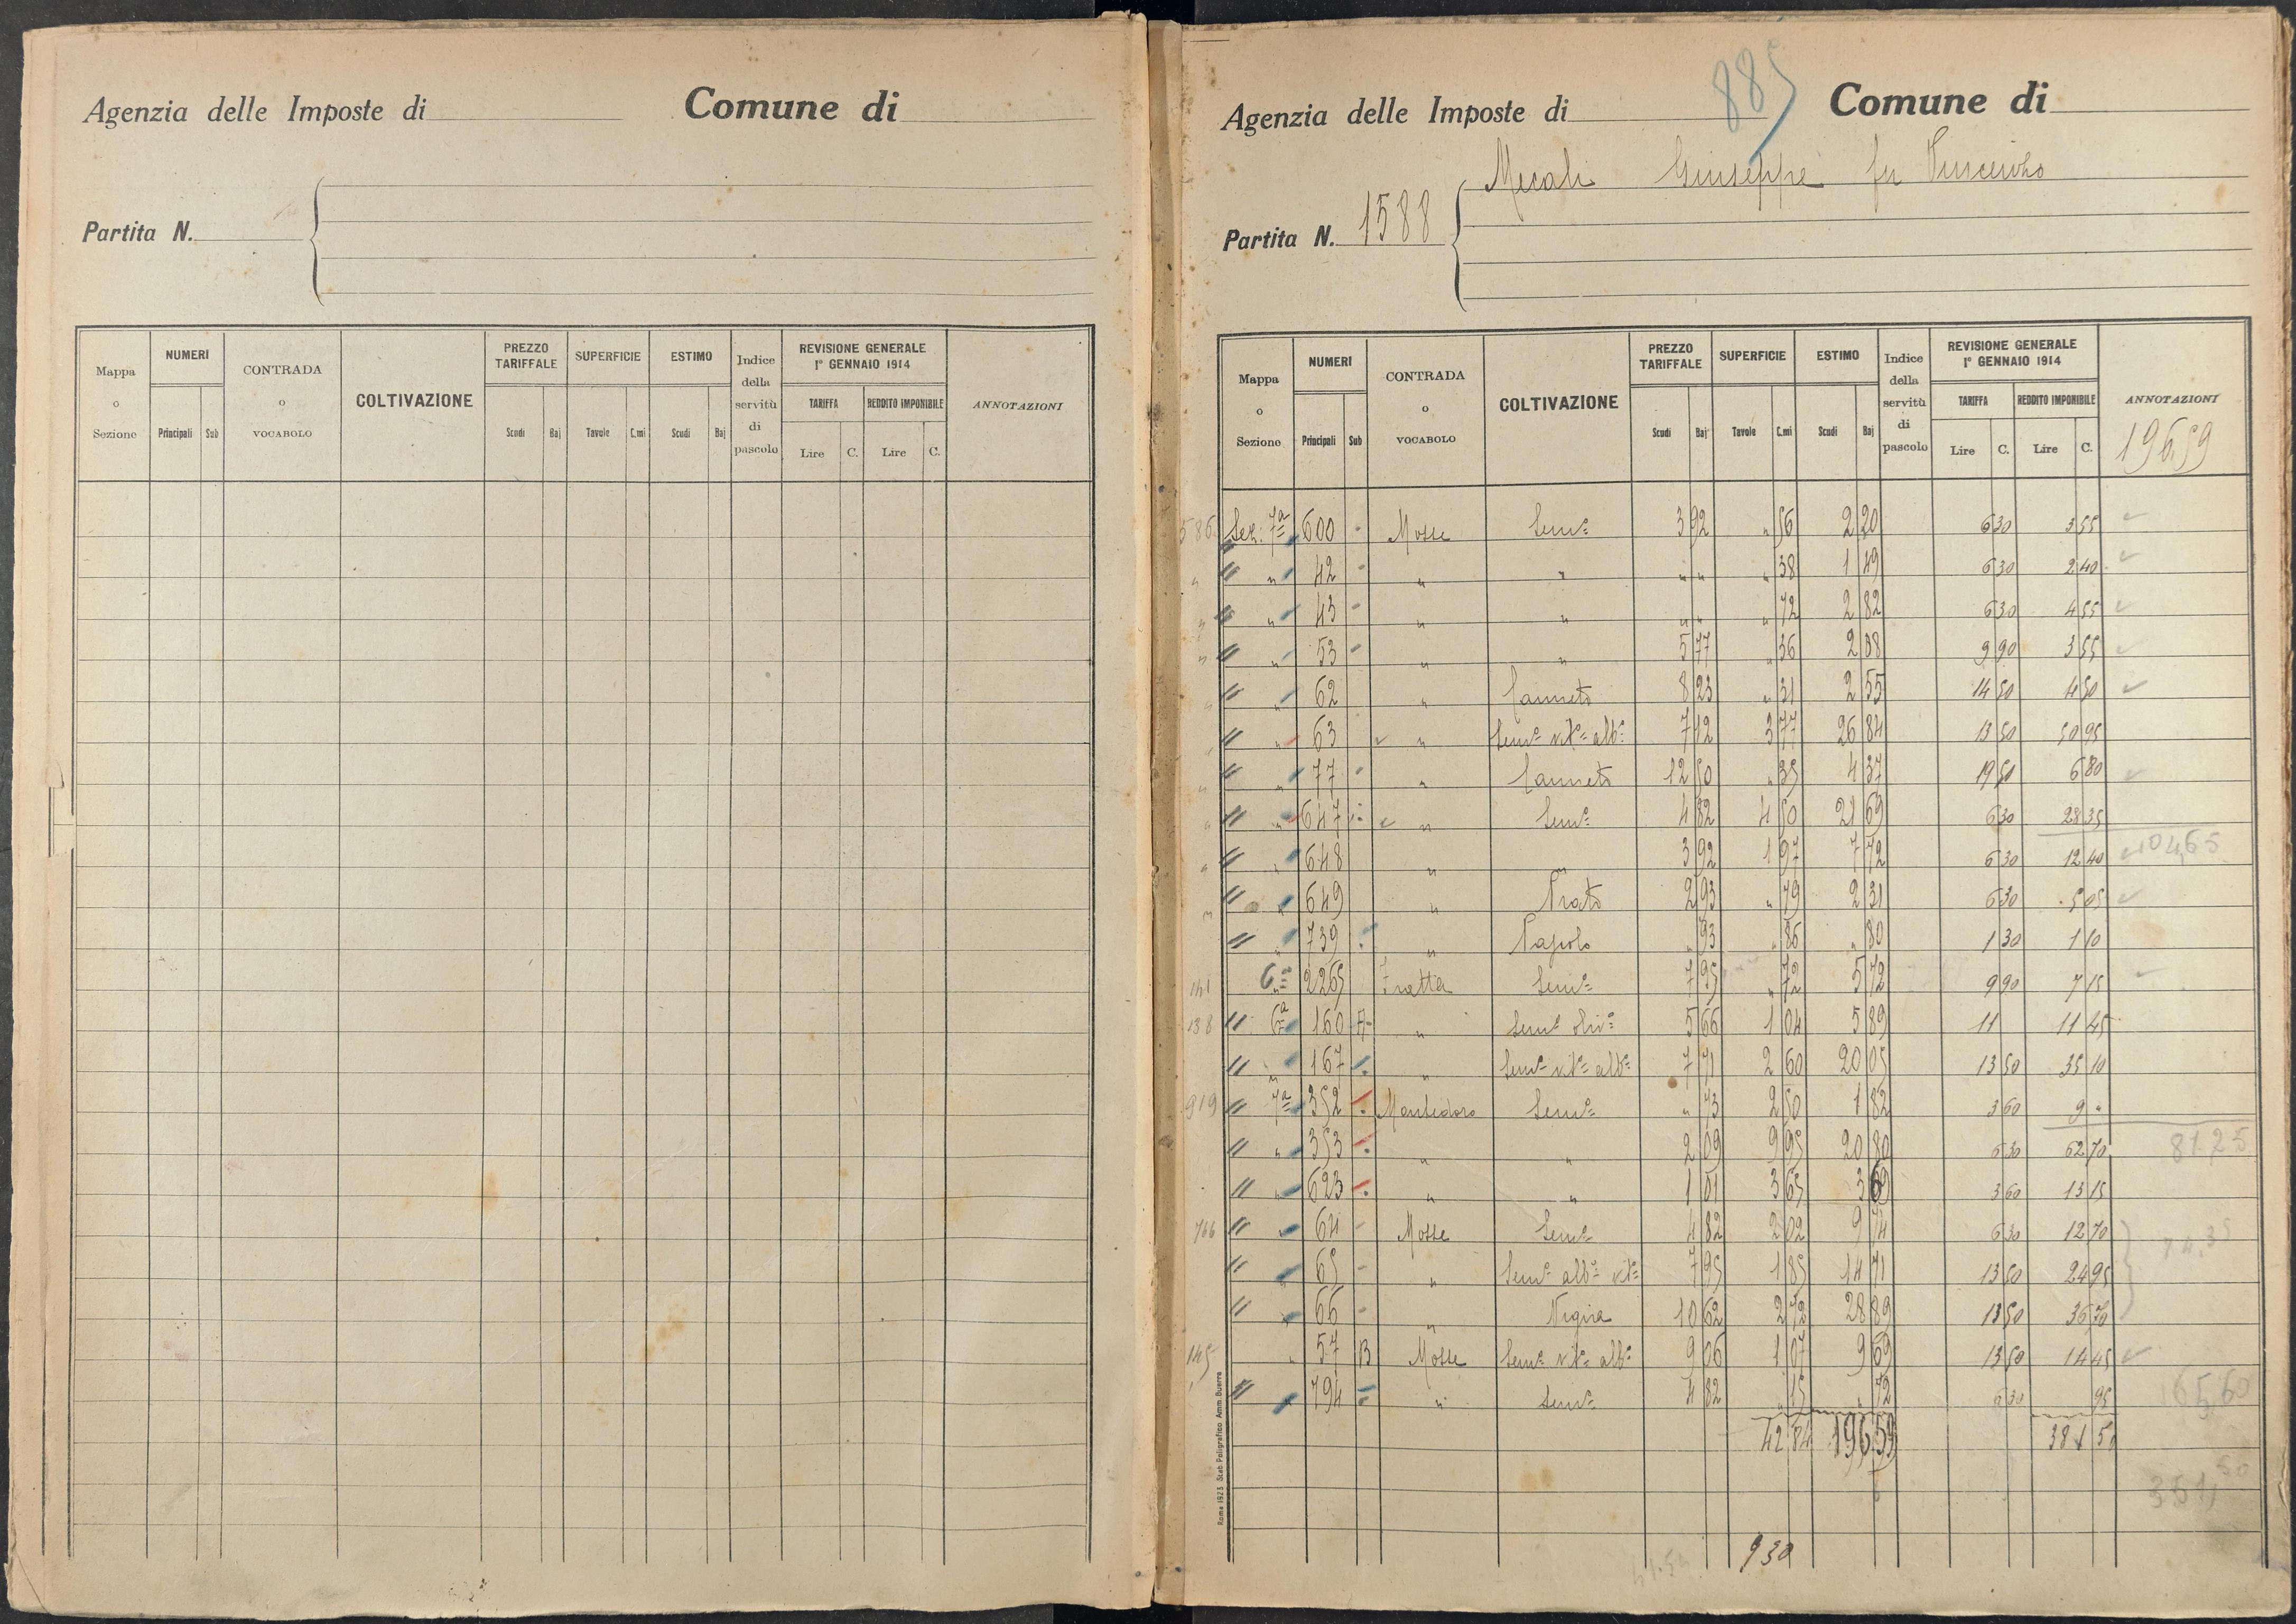 Agenzia delle Imposte di Comune di
Partita N.
Mappa o Sezione NUMERI Principali Sub CONTRADA o VOCABOLO COLTIVAZIONE PREZZO TARIFFALE Scudi Baj SUPERFICIE Tavole C.mi ESTIMO Scudi Baj Indice della servitù di pascolo REVISIONE GENERALE 1° GENNAIO 1914 TARIFFA Lire C. REDDITO IMPONIBILE Lire C. ANNOTAZIONI
885
Agenzia delle Imposte di Comune di
Giuseppe fu
Partita N. 1588
Mappa o Sezione NUMERI Principali Sub CONTRADA o VOCABOLO COLTIVAZIONE PREZZO TARIFFALE Scudi Baj SUPERFICIE Tavole C.mi ESTIMO Scudi Baj Indice della servitù di pascolo REVISIONE GENERALE 1° GENNAIO 1914 TARIFFA Lire C. REDDITO IMPONIBILE Lire C. ANNOTAZIONI
196.59
586 Sez. 7ª 600 Mosse Semº 3 92 " 56 2 20 6 30 3 55
" 42 " " " " " 38 1 49 6 30 2 40
" 43 " " " " " 72 2 82 6 30 4 55
" 53 " " 5 77 " 36 2 08 9 90 3 55
" 62 " Canneto 8 23 " 31 2 55 14 50 4 50
" 63 " Semº vitº albº 7 12 3 77 26 84 13 50 50 95
" 77 " Canneto 12 50 " 35 4 37 19 50 6 80
" 647 " Semº 4 82 4 50 21 69 6 30 28 35
" 648 " " 3 92 1 97 7 72 6 30 12 40 104,65
" 649 " Prato 2 93 " 79 2 31 6 30 5 05
" 739 " Pascolo " 93 " 86 " 80 1 30 1 10
141 6ª 2265 Fratta Semº 7 95 " 72 5 72 9 90 7 15
138 6ª 160 A " Semº olivº 5 66 1 04 5 89 11 11 45
" 167 " Semº vitº albº 7 71 2 60 20 05 13 50 35 10
919 7ª 352 Montedoro Semº " 73 2 50 1 82 3 60 9 "
" 353 " " 2 09 9 95 20 80 6 30 62 70 81,25
" 623 " " 1 01 3 65 3 69 3 60 13 15
766 64 Mosse Semº 4 82 2 02 9 74 6 30 12 70
" 65 " Semº albº vitº 7 95 1 85 14 71 13 50 24 95 74,35
" 66 " Vigna 10 62 2 72 28 89 13 50 36 70
145 " 57 B Mosse Semº vitº albº 9 06 1 07 9 69 13 50 14 45
" 794 " Semº 4 82 " 15 " 72 6 30 95 165,60
42 84 196 59 381 50
351,50
930
Roma 1923 Stab. Poligrafico Amm. Guerra